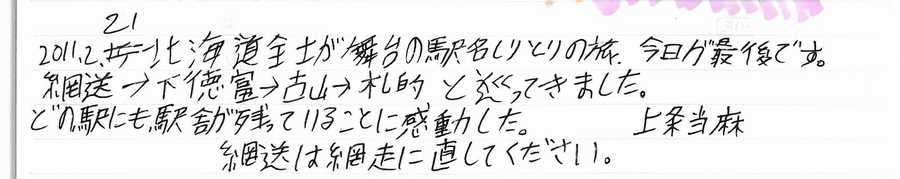 21
2011.2. 北海道全土が舞台の駅名しりとりの旅、今日が最後です。
網送→下徳富→古山→札的 と巡ってきました。
どの駅にも駅舎が残っていることに感動した。 上条当麻
網送は網走に直してください。